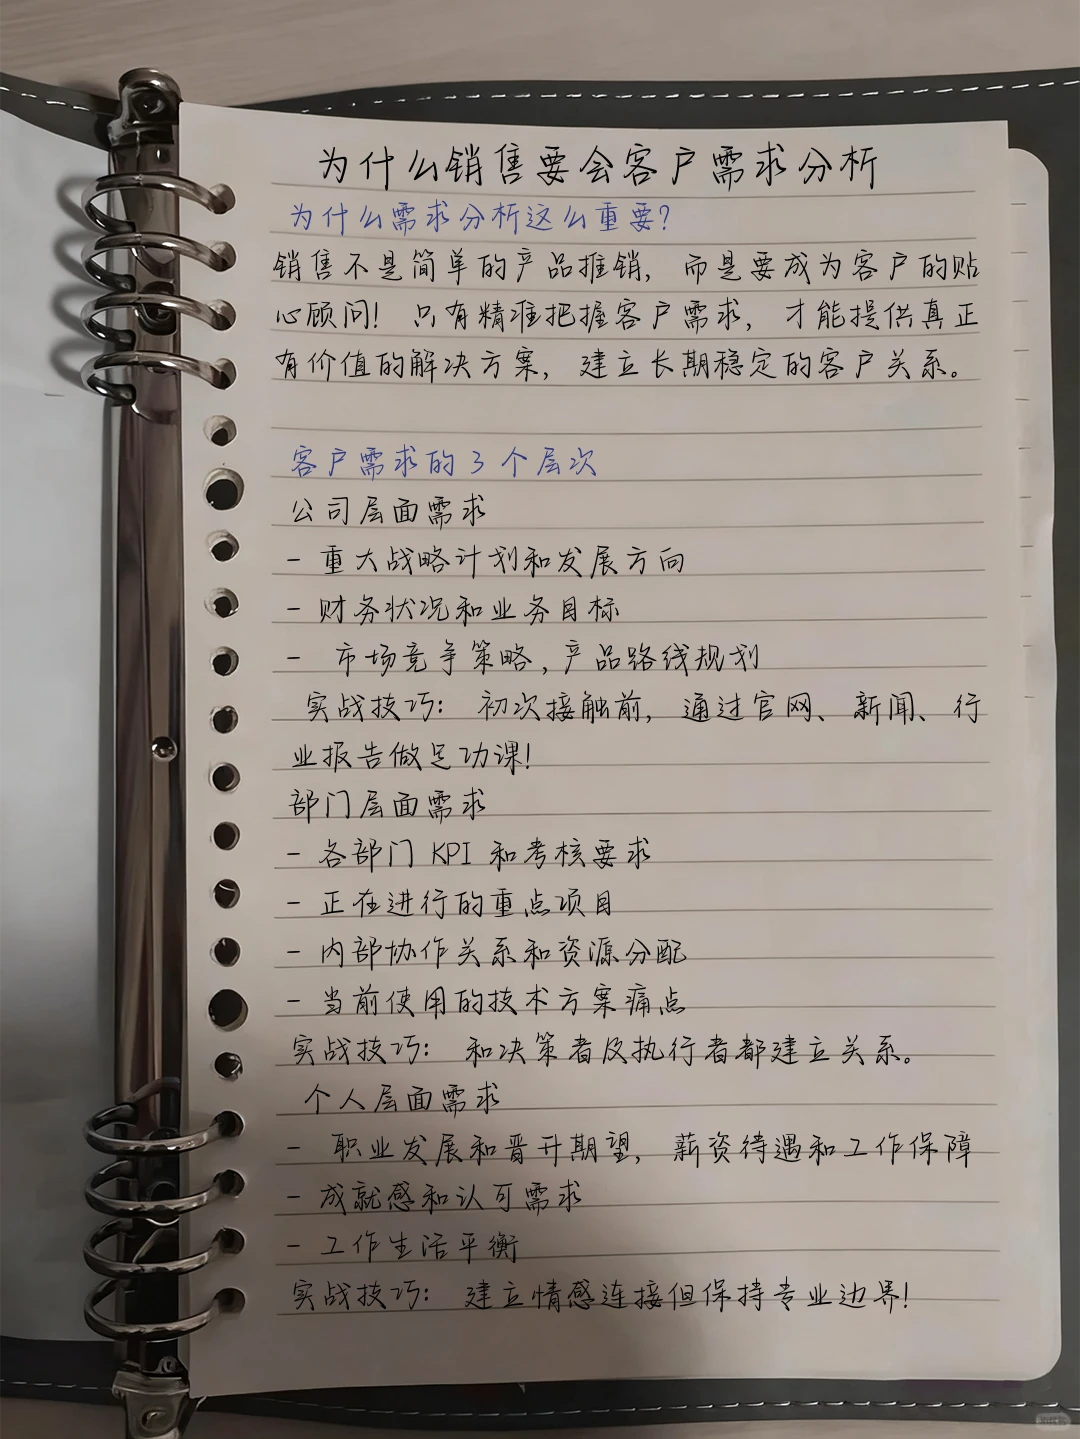 为什么销售要会客户需求分析
为什么需求分析这么重要?
销售不是简单的产品推销，而是要成为客户的贴
心顾问！只有精准把握客户需求，才能提供真正
有价值的解决方案，建立长期稳定的客户关系。
客户需求的3个层次
公司层面需求
- 重大战略计划和发展方向
- 财务状况和业务目标
- 市场竞争策略,产品路线规划
实战技巧：初次接触前，通过官网、新闻、行
业报告做足功课!
部门层面需求
- 各部门 KPI 和考核要求
- 正在进行的重点项目
- 内部协作关系和资源分配
- 当前使用的技术方案痛点
实战技巧：和决策者及执行者都建立关系。
个人层面需求
- 职业发展和晋升期望，薪资待遇和工作保障
- 成就感和认可需求
- 工作生活平衡
实战技巧：建立情感连接但保持专业边界!